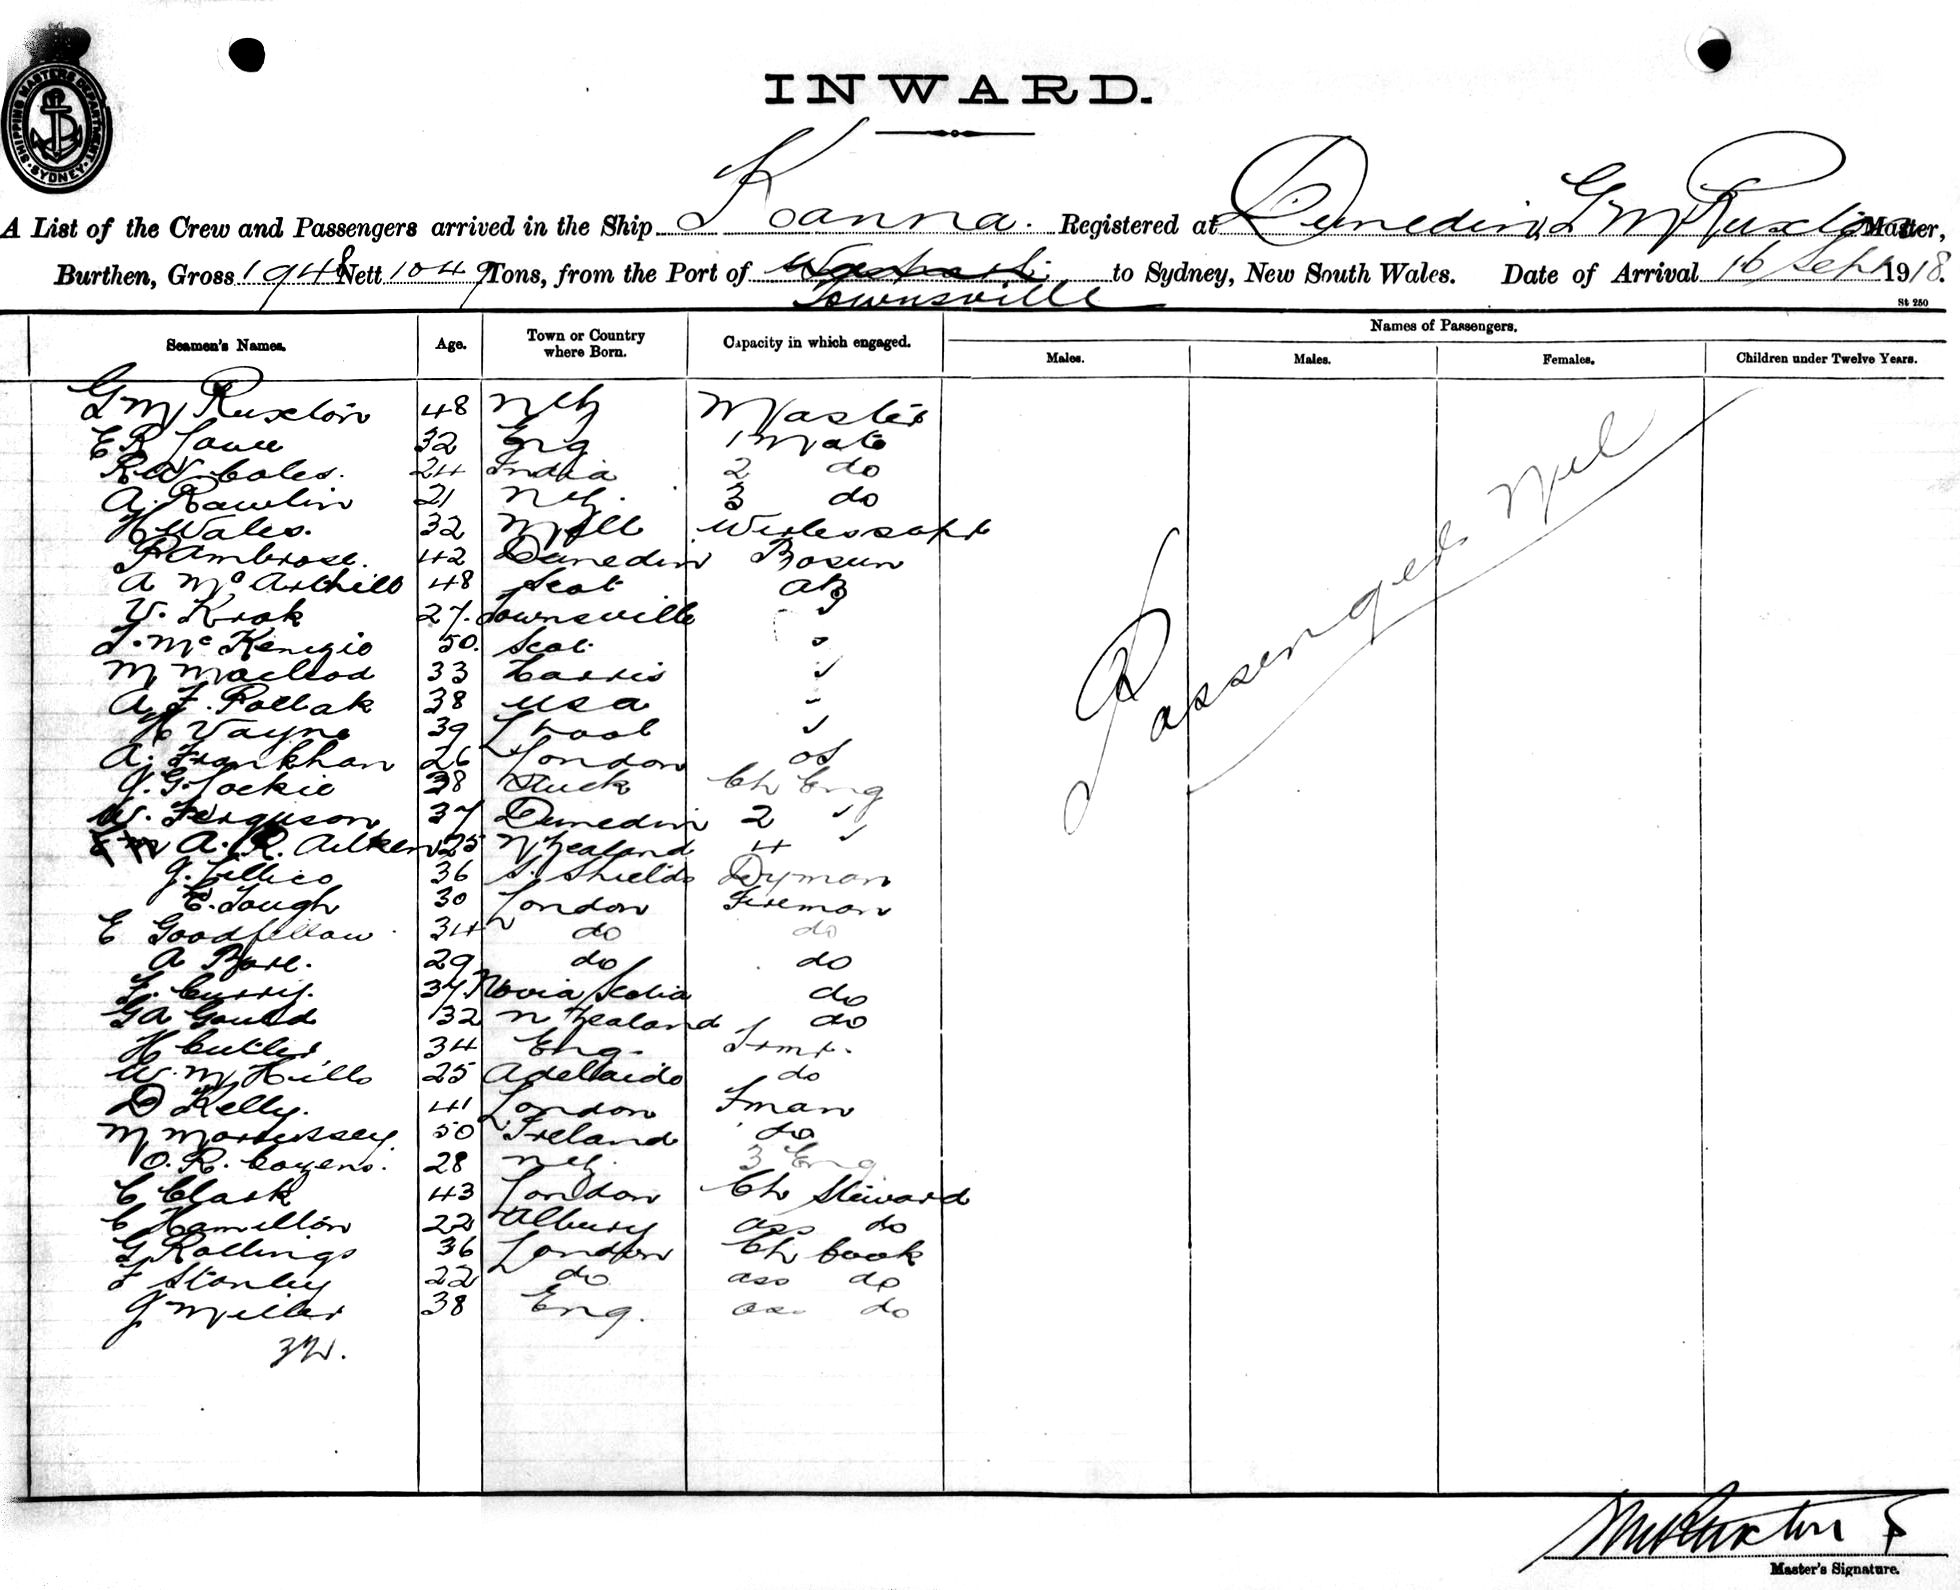 SHIPPING MASTERS DEPARTMENT. SYDNEY.
INWARD.
A List of the Crew and Passengers arrived in the Ship Koanna. Registered at Dunedin, G M Ruxton Master,
Burthen, Gross 1948 Nett 1049 Tons, from the Port of Townsville to Sydney, New South Wales. Date of Arrival 16 Sept 1918.
St 250
Seamen's Names. Age. Town or Country where Born. Capacity in which engaged. Names of Passengers.
Males. Males. Females. Children under Twelve Years.
G M Ruxton 48 Master
E R Lowe 32 Eng 1 Mate
R W Coles. 24 India 2 do
A. Rawlin 21 3 do
H Wales. 32
Ambrose. 42 Dunedin Bosun
A McArthill 48 Scot AB
V. Krak 27. Townsville "
J. McKenzie 50. Scot. "
M Macleod 33 Harris "
A F. Pollak 38 USA "
H Vayne 39 Lpool "
A. Frankhan 26 London OS
J. G. Lockie 38 Ch Eng
W. Ferguson 37 Dunedin 2 "
A. R. Aitken 25 N Zealand 4 "
J. Lillico 36 S. Shields Dyman
E. Tough 30 London Fireman
E Goodfellow 34 do do
A Bore. 29 do do
Curry. 37. Novia Scotia do
G A Gould 32 N Zealand do
H Cutler. 34 Eng. Trmr.
W. M Hills 25 Adelaide do
D Kelly. 41 London Fman
M Morrissey 50 Ireland do
O. R. Cozens. 28 3 Eng
C Clark 43 London Ch Steward
C Hamilton 22 Albury ass do
G Rollings 36 London Ch Cook
F Stanley 22 do ass do
J Miller 38 Eng. ass do
32.
Passengers Nil
G M Ruxton
Master's Signature.